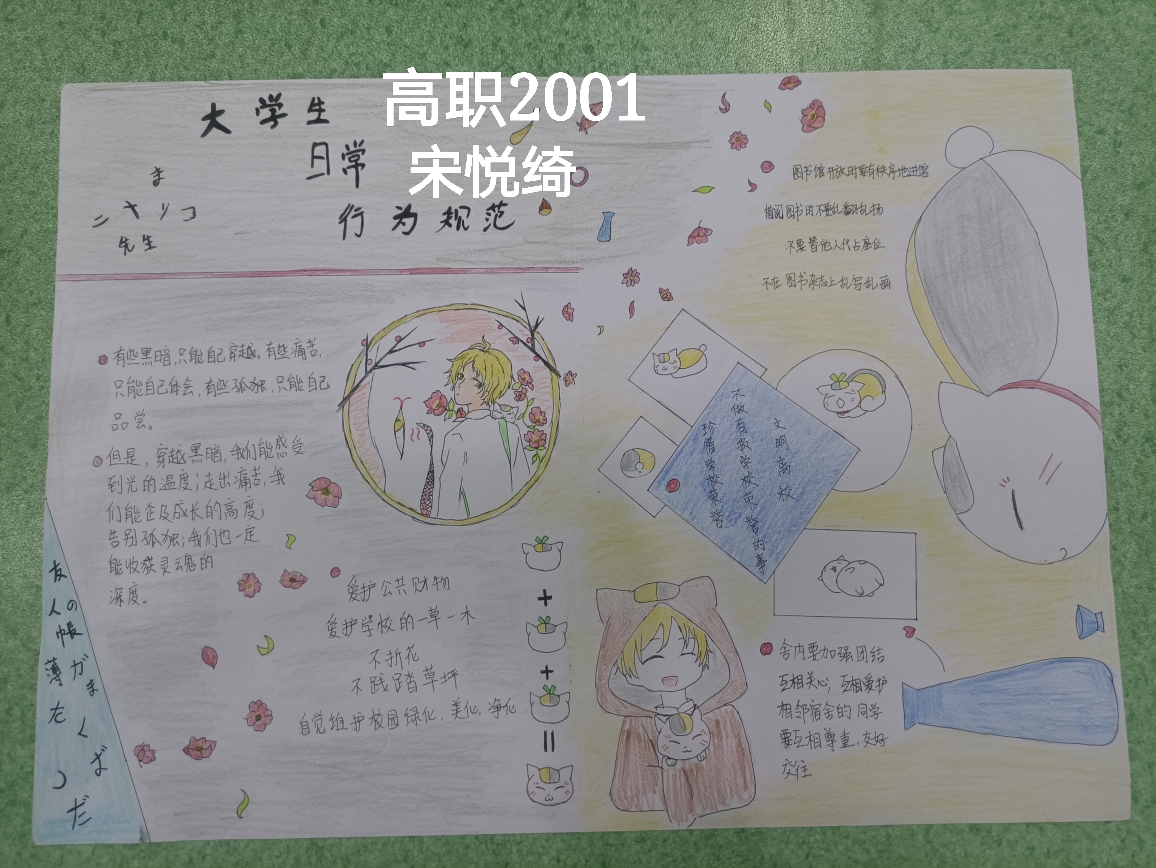 高职2001
宋悦绮
大学生
日常
行为规范
ま
ニャンコ
先生
图书馆开放时要有秩序地进馆
借阅图书时不要乱翻乱扔
不要替他人代占座位
不在图书杂志上乱写乱画
有些黑暗,只能自己穿越,有些痛苦,
只能自己体会,有些孤独,只能自己
品尝。
但是,穿越黑暗,我们能感受
到光的温度;走出痛苦,我
们能企及成长的高度;
告别孤独;我们也一定
能收获灵魂的
深度。
文明离校
不做有损学校荣誉的事
珍惜学校荣誉
爱护公共财物
爱护学校的一草一木
不折花
不践踏草坪
自觉维护校园绿化、美化、净化
+
+
=
舍内要加强团结
互相关心,互相爱护
相邻宿舍的同学
要互相尊重,友好
交往
友人の帳